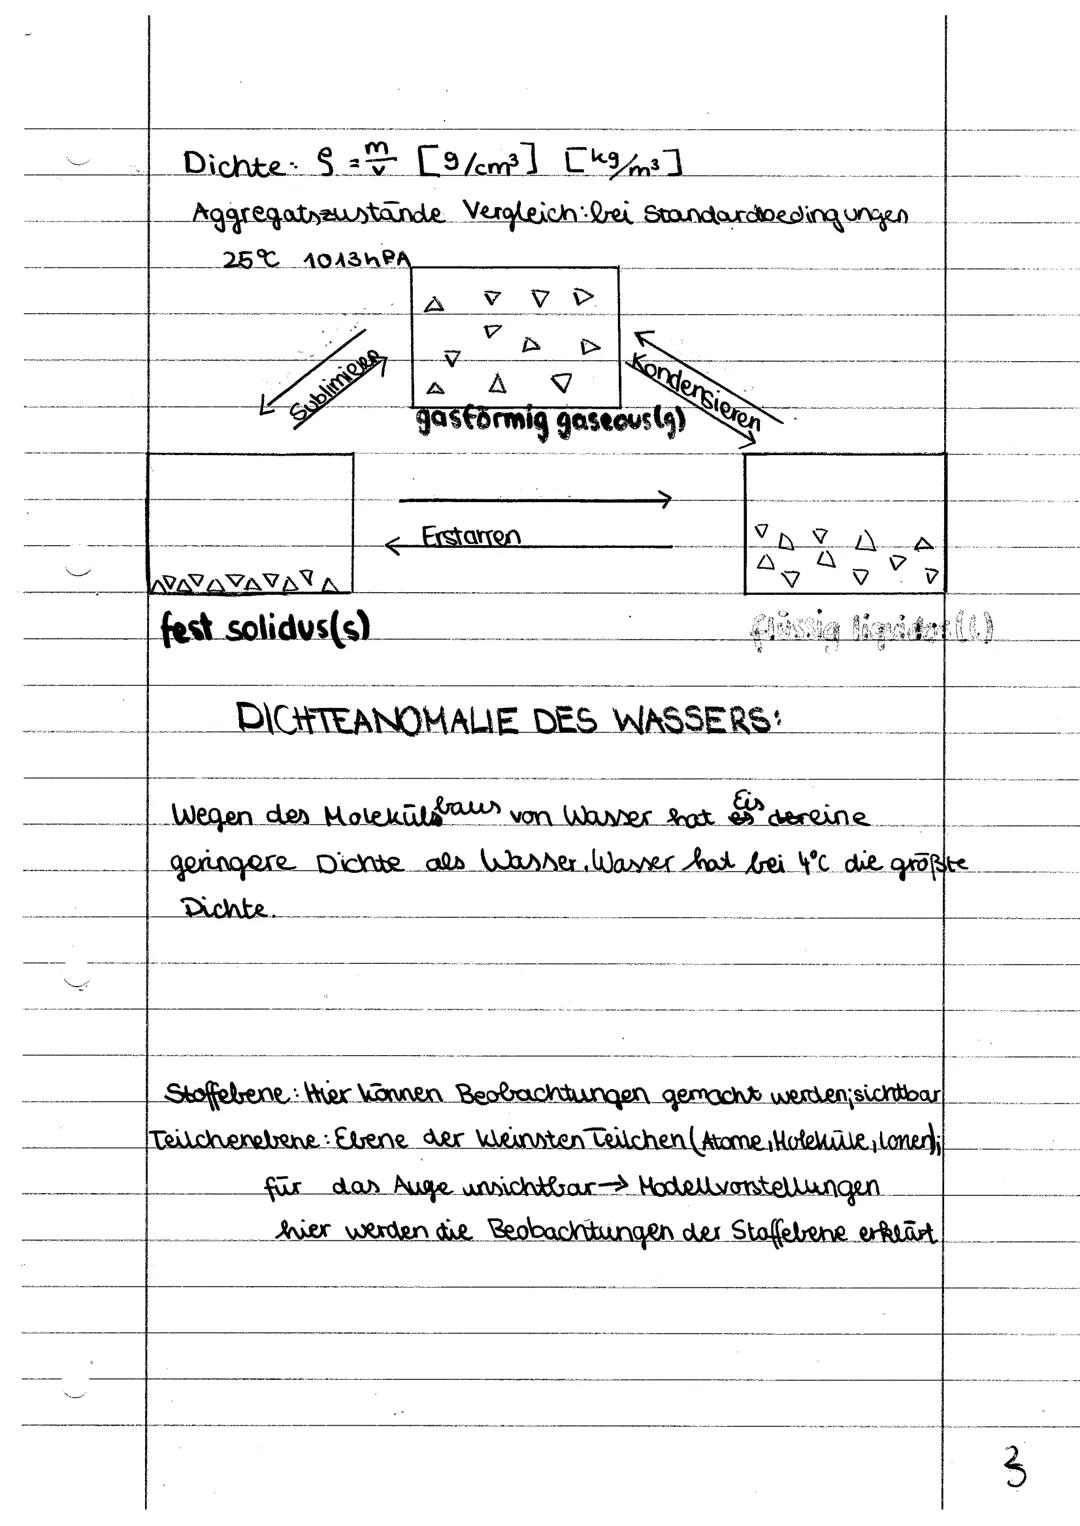 Dichte: ρ = m/v [g/cm³] [kg/m³]
Aggregatszustände Vergleich: bei Standardbedingungen
25°C 1013hPA
Sublimieren
Kondensieren
gasförmig gaseous(g)
Erstarren
fest solidus(s)
flüssig liquidus(l)
DICHTEANOMALIE DES WASSERS:
Wegen des Molekülsbaus von Wasser hat Eis eine
geringere Dichte als Wasser. Wasser hat bei 4°C die größte
Dichte.
Stoffebene: Hier können Beobachtungen gemacht werden; sichtbar
Teilchenebene: Ebene der kleinsten Teilchen (Atome, Moleküle, Ionen);
für das Auge unsichtbar → Modellvorstellungen
hier werden die Beobachtungen der Stoffebene erklärt
3